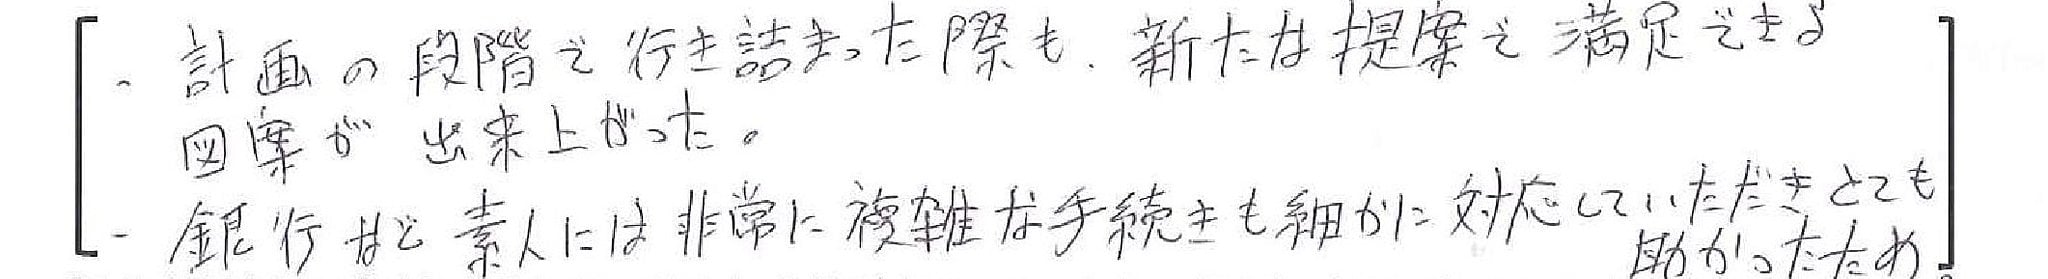 - 計画の段階で行き詰まった際も、新たな提案で満足できる
図案が出来上がった。
- 銀行など素人には非常に複雑な手続きも細かに対応していただきとても
助かったため